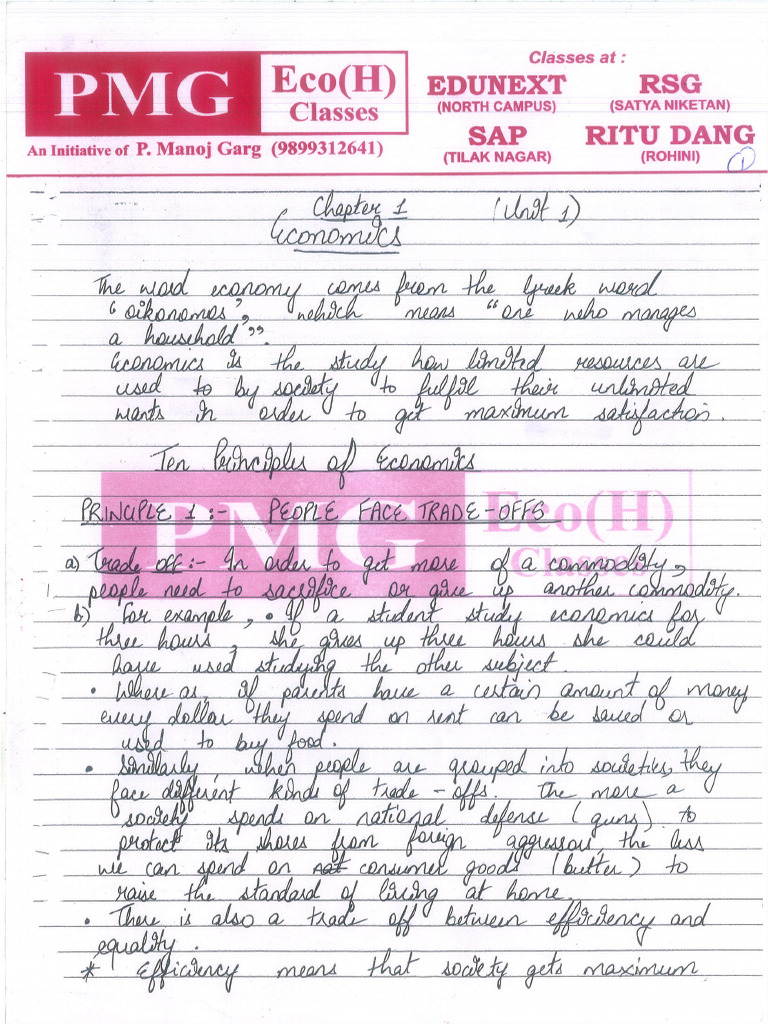 PMG Eco(H) Classes
An Initiative of P. Manoj Garg (9899312641)
Classes at :
EDUNEXT (NORTH CAMPUS) RSG (SATYA NIKETAN)
SAP (TILAK NAGAR) RITU DANG (ROHINI)
1
Chapter 1 (Unit 1)
Economics
The word economy comes from the Greek word
"oikonomos", which means "one who manages
a household".
Economics is the study how limited resources are
used to by society to fulfil their unlimited
wants in order to get maximum satisfaction.
Ten Principles of Economics
PMG Eco(H) Classes
PRINCIPLE 1 :- PEOPLE FACE TRADE-OFFS
a) Trade off :- In order to get more of a commodity,
people need to sacrifice or give up another commodity.
b) For example, • If a student study economics for
three hours, she gives up three hours she could
have used studying the other subject.
• Where as, if parents have a certain amount of money
every dollar they spend on rent can be saved or
used to buy food.
• Similarly, when people are grouped into societies, they
face different kinds of trade-offs. The more a
society spends on national defense (guns) to
protect its shores from foreign aggressors, the less
we can spend on not consumer goods (butter) to
raise the standard of living at home.
• There is also a trade off between efficiency and
equality.
* Efficiency means that society gets maximum